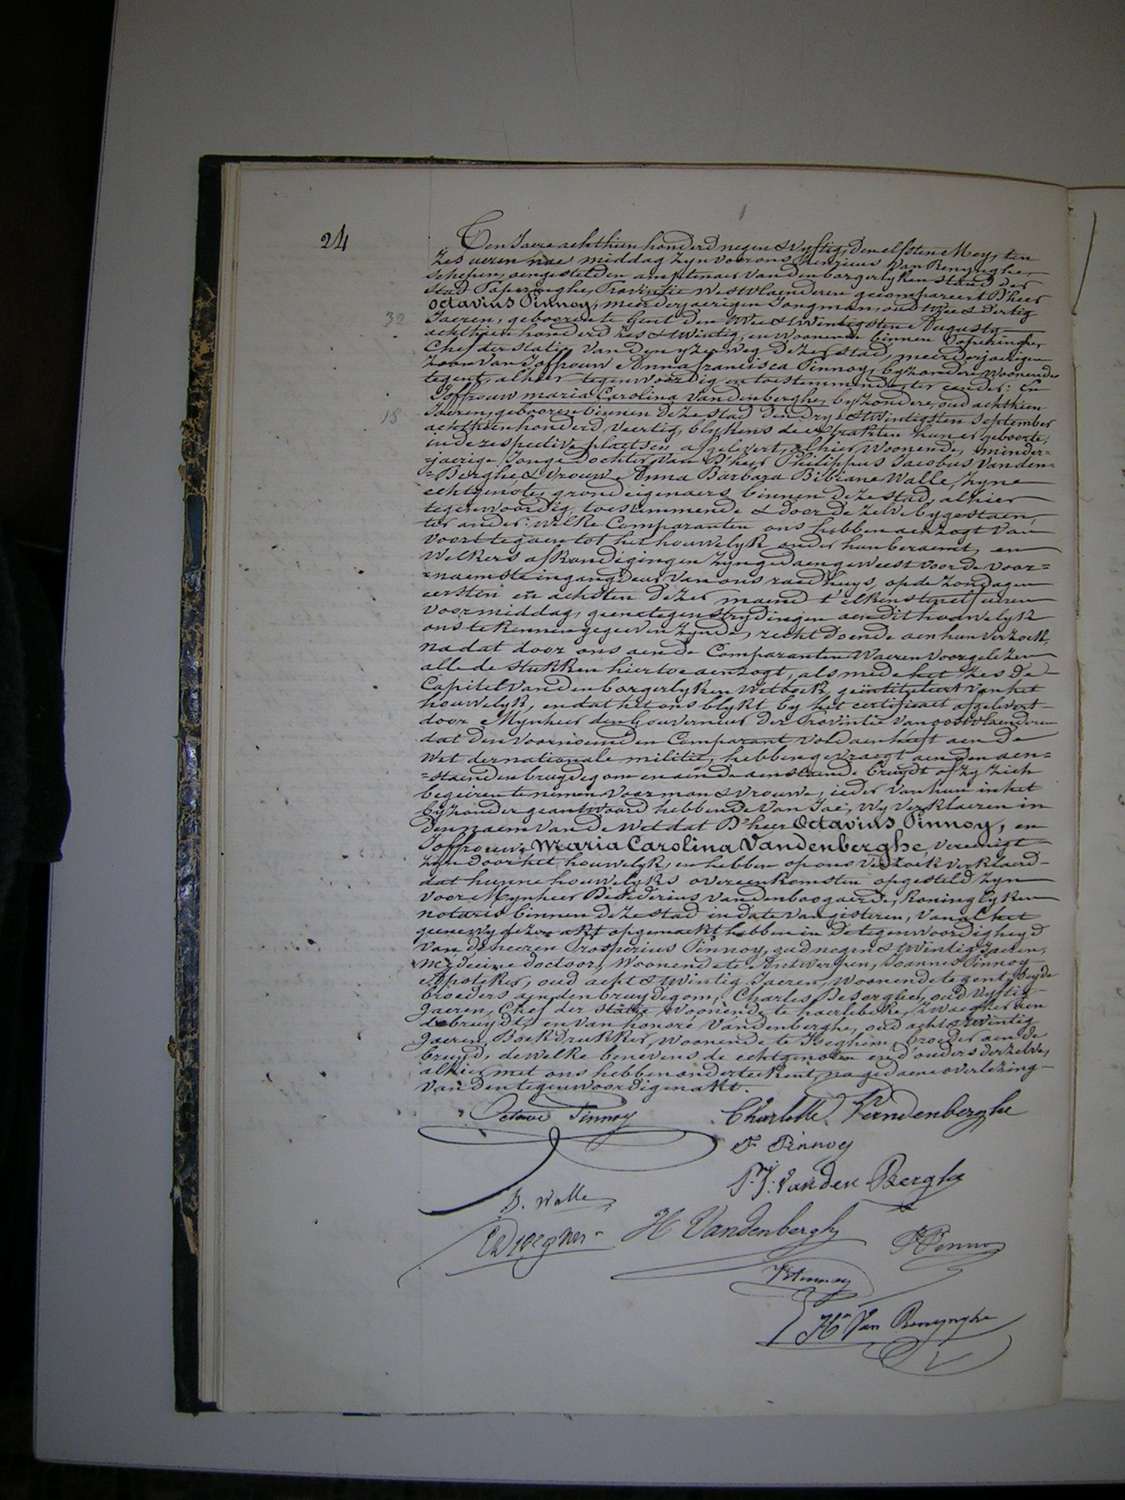 24
Den Jaere achthien honderd negen & vyftig, den elfsten Mey, ten
zes ueren nae middag zyn voor ons Henricus Van Renynghe,
schepen, aengestelden amptenaer van den borgerlyken stand der
stad Poperinghe, Provintie Westvlaenderen gecompareert D'heer
Octavius Pinnoy, meerderjaerigen Jongman, oud twee & dertig
32
Jaeren, gebooren te Gent den twee & twintigsten Augusty
achthien honderd zes & twintig, en woonende binnen Poperinghe,
Chef der statie van den yzerweg dezer stad, meerderjaerigen
zoon van Joffrouw Anna francisca Pinnoy, byzondere woonende
te gent, alhier tegenwoordig en toestemmende ter eender; En
Joffrouw maria Carolina Vandenberghe, byzondere, oud achthien
18
Jaeren, gebooren binnen deze stad den dry & twintigsten september
achthien honderd veertig, blykens de extrakten hunner geboorte,
in de respective plaetsen afgelevert, & hier woonende, minder-
jaerige Jonge Dochter van D'heer Philippus Jacobus Vanden-
Berghe & vrouw Anna Barbara Bibiane Walle, zyne
echtgenote, grondeigenaers binnen deze stad, alhier
tegenwoordig, toestemmende & door de zelve bygestaen,
ter ander: welke Comparanten ons hebben aenzogt van
voort te gaen tot het houwelyk onder hun beraemt, en
welkers afkondigingen zyn gedaen geweest voor de voor-
naemste ingangdeur van ons raedhuys, op de zondagen
eersten en achsten dezer maend t'elkens ten elf ueren
voormiddag, geene tegenstrydingen aen dit houwelyk
ons te kennen gegeven zynde, recht doende aen hun verzoek,
na dat door ons aen de Comparanten waeren voorgelezen
alle de stukken hiertoe aenzogt, als mede het zesde
Capitel van den borgerlyken wetboek, geïntituleert van het
houwelyk, en dat het ons blykt by het certificaet afgelevert
door Mynheer den Gouverneur der Provintie van oostvlaenderen
dat den voornoemden Comparant voldaen heeft aen de
wet der nationale militie, hebben gevraegt aen den aen-
staenden bruydegom en aen de aenstaende bruydt of zy zich
begeiren te nemen voor man & vrouwe, ieder van hun in het
byzonder geantwoord hebbende van Jae, wy verklaeren in
den naem van de wet dat D'heer Octavius Pinnoy, en
Joffrouwe Maria Carolina Vandenberghe, vereenigt
zyn door het houwelyk, en hebben op ons verzoek verklaerd
dat hunne houwelyks overeenkomsten opgesteld zyn
voor Mynheer Desiderius Vandenboogaerde, koninglyken
notaris binnen deze stad in date van gisteren, Van al het
geene wy dezen akt opgemaekt hebben in de tegenwoordigheyd
van de heeren Prosperius Pinnoy, oud negen & twintig Jaeren,
Médecine doctoor, woonende te Antwerpen, Joannes Pinnoy
Apoteker, oud acht & twintig Jaeren, woonende te gent, beyde
broeders aen den bruydegom, Charles Deserghers, oud vyftig
Jaeren, Chef der statie, woonende te haerlebeke, zwaegher aen
de bruydt, en van honoré Vandenberghe, oud acht & twintig
Jaeren, Boekdrukker, woonende te Iseghem, broeder aen de
bruyd, de welke benevens de echtgenoten en d'ouders derzelve,
alhier met ons hebben onderteekent, na gedaene overlezing
van den tegenwoordigen akt.
Octave Pinnoy
Charlotte Vandenberghe
F. Pinnoy
P. J. Vanden Berghe
B. Walle
H Vandenberghe
P Pinnoy
J Pinnoy
Hri Van Renynghe